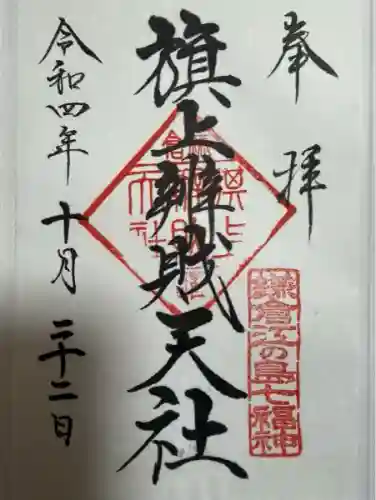 奉拝
旗上辨財天社
令和四年十月二十二日
鎌倉江の島七福神